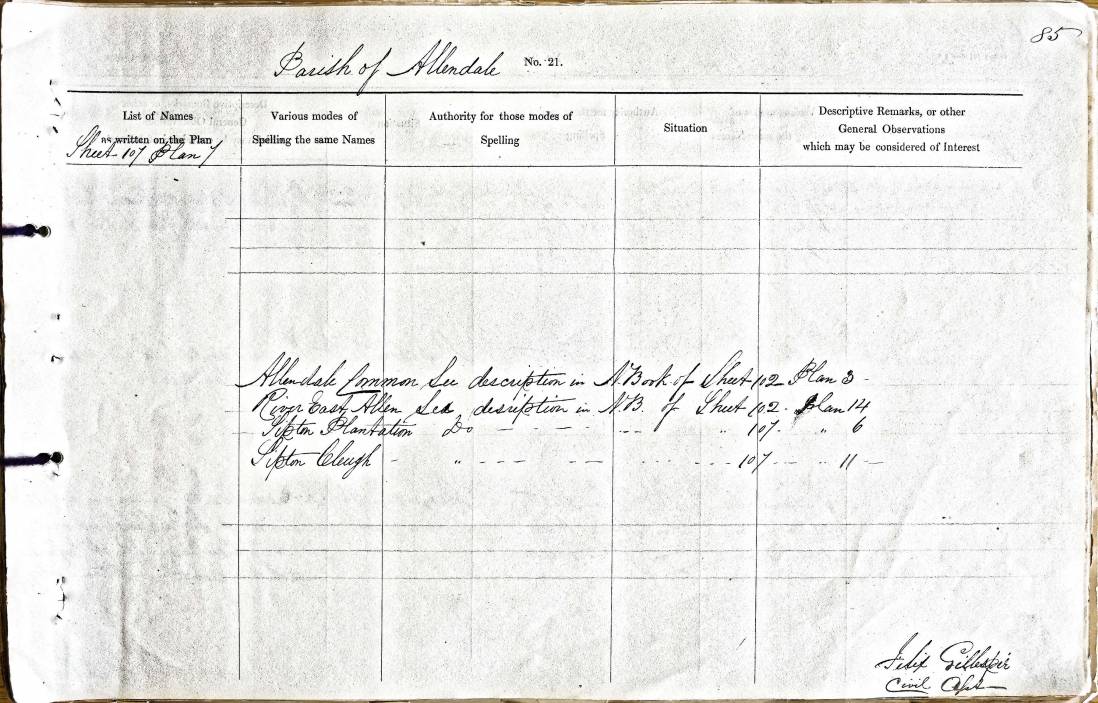 85
Parish of Allendale No. 21.
List of Names
as written on the Plan
Sheet 107 Plan 7
Various modes of
Spelling the same Names
Authority for those modes of
Spelling
Situation
Descriptive Remarks, or other
General Observations
which may be considered of Interest
Allendale Common See description in N. Book of Sheet 102 Plan 3
River East Allen See desiption in N.B. of Sheet 102 Plan 14
Sipton Plantation Do - - - - - - - " 107 " 6
Sipton Cleugh - " - - - - - - - - - 107 - - " 11 -
Felix Gillespie
Civil Asst